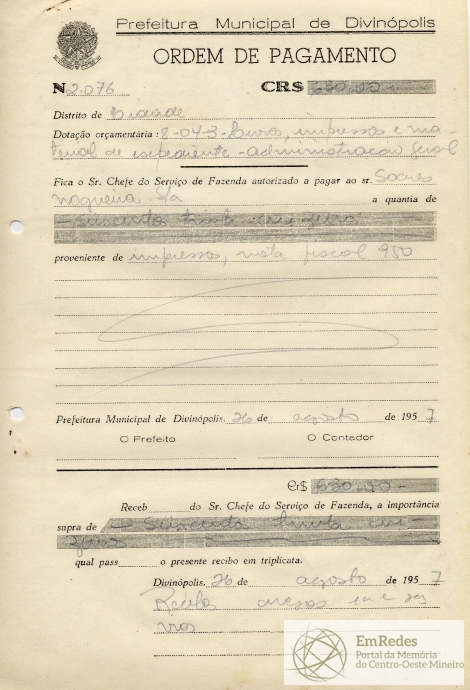 Prefeitura Municipal de Divinópolis
ORDEM DE PAGAMENTO
N 2.076 CR$ 630,00-
Distrito de Cidade
Dotação orçamentária: 8-04-3-Livros, impressos e ma-
terial de expediente-administração geral
Fica o Sr. Chefe do Serviço de Fazenda autorizado a pagar ao sr. Soares
Nogueira S/a a quantia de
- Seiscentos trinta cruzeiros
proveniente de impressos, nota fiscal 950
Prefeitura Municipal de Divinópolis, 26 de agosto de 1957
O Prefeito O Contador
Cr$ 630,00-
Receb do Sr. Chefe do Serviço de Fazenda, a importância
supra de - Seiscentos trinta cru-
zeiros
qual pass o presente recibo em triplicata.
Divinópolis, 26 de agosto de 1957
Recibo anexos
EmRedes
Portal da Memória
do Centro-Oeste Mineiro